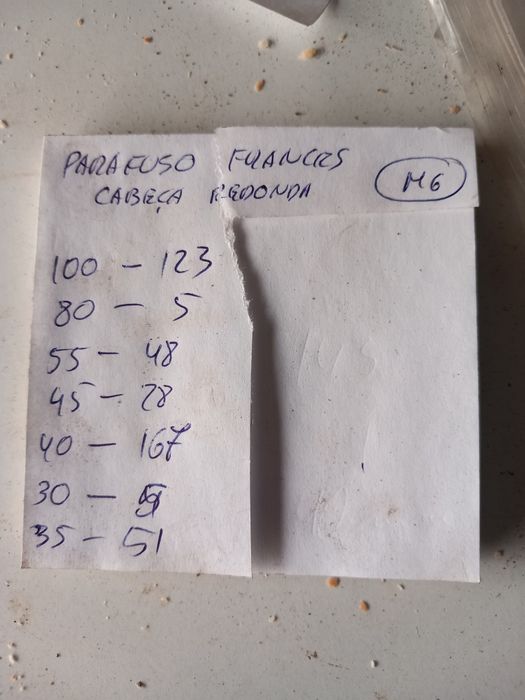 PARAFUSO FRANCES
CABEÇA REDONDA
M6
100 - 123
80 - 5
55 - 48
45 - 28
40 - 167
30 -
35 - 51